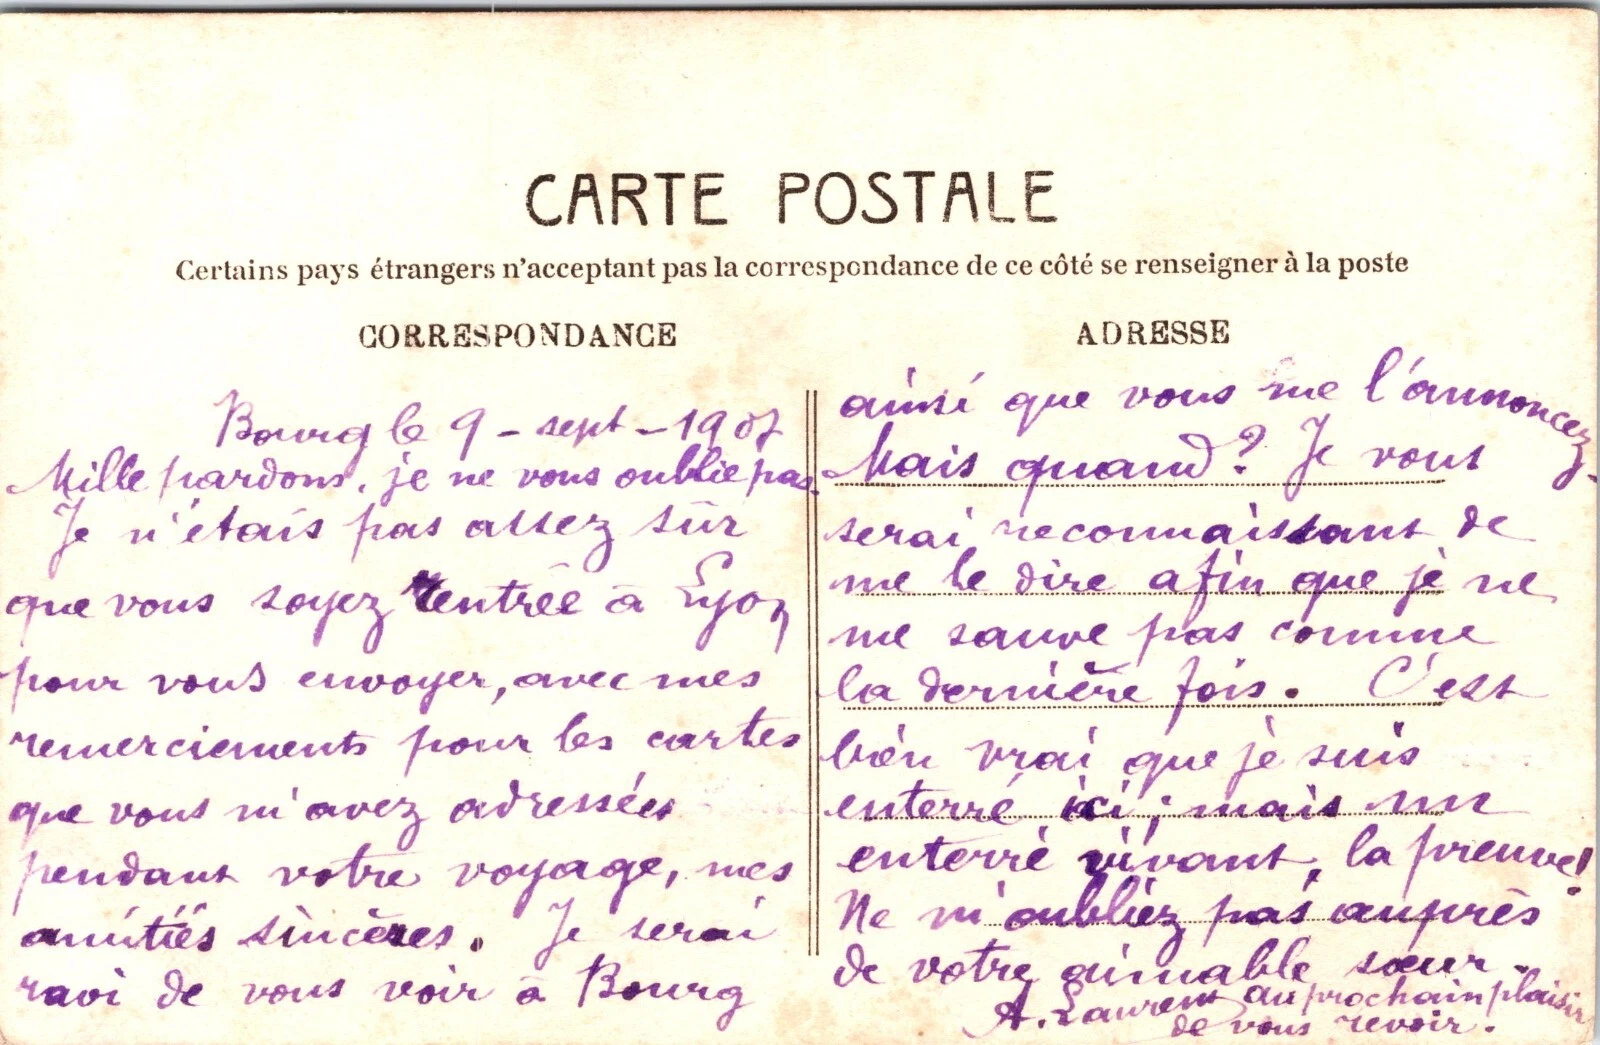 CARTE POSTALE
Certains pays étrangers n'acceptant pas la correspondance de ce côté se renseigner à la poste
CORRESPONDANCE
Bourg le 9 - sept - 1907
Mille pardons, je ne vous oublie pas.
Je n'étais pas assez sûr
que vous soyez rentrée à Lyon
pour vous envoyer, avec mes
remerciements pour les cartes
que vous m'avez adressées
pendant votre voyage, mes
amitiés sincères. Je serai
ravi de vous voir à Bourg
ADRESSE
ainsi que vous me l'annoncez.
Mais quand ? Je vous
serai reconnaissant de
me le dire afin que je ne
me sauve pas comme
la dernière fois. C'est
bien vrai que je suis
enterré ici ; mais un
enterré vivant, la preuve !
Ne m'oubliez pas auprès
de votre aimable sœur.
A. Laurent au prochain plaisir
de vous revoir.